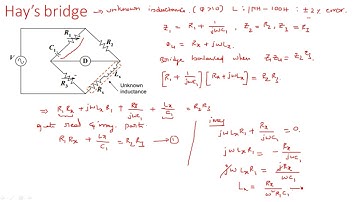 Hay's bridge → unknown inductance. (Q>10) L: 1μH - 100H : ±2% error.
Z₁ = R₁ + 1/jωC₁, Z₂ = R₂, Z₃ = R₃
Z₄ = Rₓ + jωLₓ.
Bridge balanced when Z₁Z₄ = Z₂Z₃
[R₁ + 1/jωC₁] [Rₓ + jωLₓ] = R₂R₃.
V
R₁
C₁
R₂
D
R₃
Lₓ
Rₓ
Unknown
inductance
⇒ R₁Rₓ + jωLₓR₁ + Rₓ/jωC₁ + Lₓ/C₁ = R₂R₃
real & imag. parts.
R₁Rₓ + Lₓ/C₁ = R₂R₃ → ①
imag
jωLₓR₁ + Rₓ/jωC₁ = 0.
jωLₓR₁ = - Rₓ/jωC₁
jωLₓR₁ = jRₓ/ωC₁
Lₓ = Rₓ/ω²R₁C₁